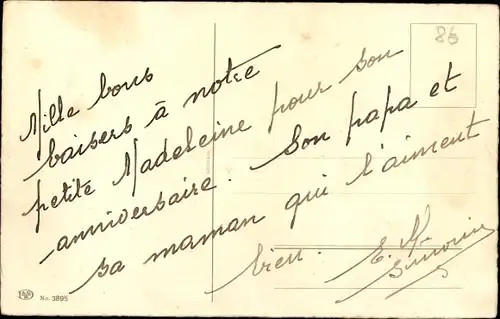 85
Mille bons
baisers à notre
petite Madeleine pour son
anniversaire. Son papa et
sa maman qui l'aiment
bien. E. M.
No. 3895